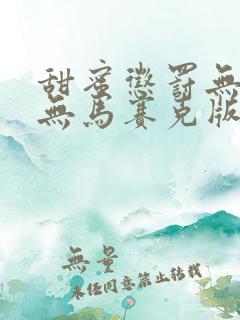 甜蜜懲罰無
無馬賽克版
無量
未經同意禁止转载